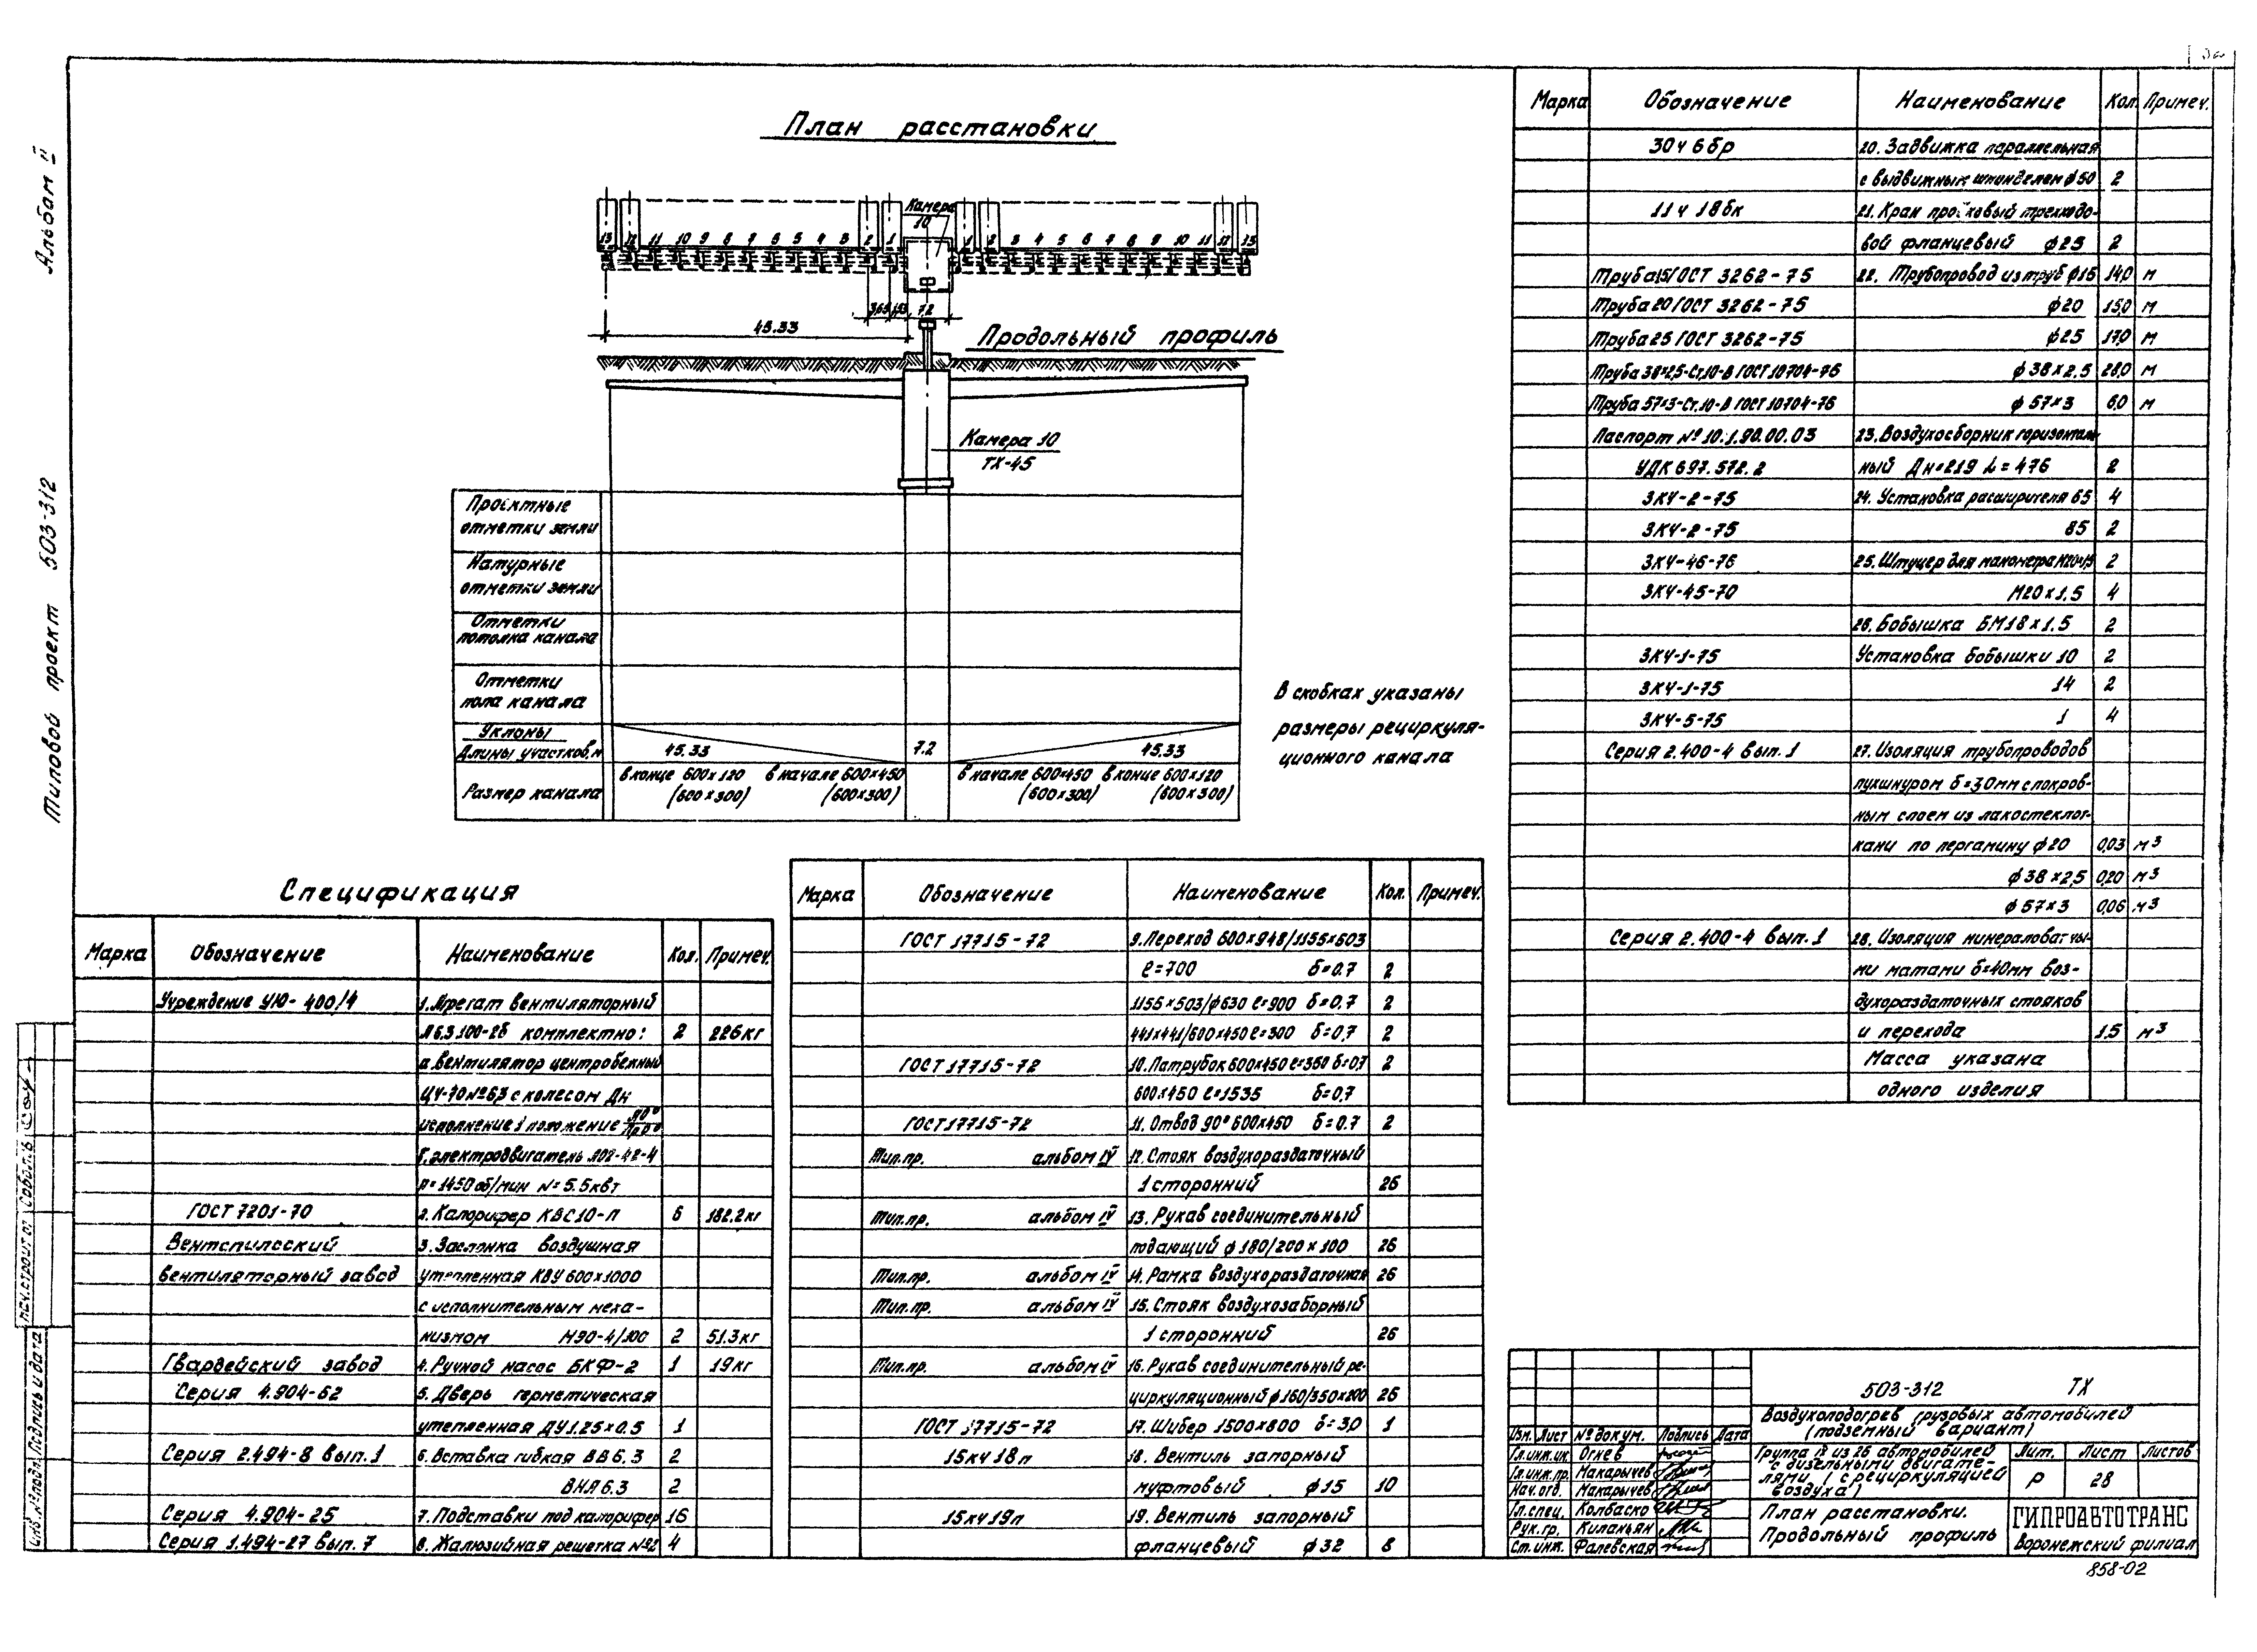 Альбом II
Типовой проект 503-312
План расстановки
Камера
10
13 12 11 10 9 8 7 6 5 4 3 2 1
1 2 3 4 5 6 7 8 9 10 11 12 13
3,65 7.2
45.33
Продольный профиль
Камера 10
ТХ-45
Проектные
отметки земли
Натурные
отметки земли
Отметки
потолка канала
Отметки
пола канала
Уклоны
Длины участков, м 45.33 7.2 45.33
Размер канала
в конце 600×120 в начале 600×450 в начале 600×450 в конце 600×120
(600×300) (600×300) (600×300) (600×300)
В скобках указаны
размеры рециркуля-
ционного канала
Спецификация
Марка Обозначение Наименование Кол. Примеч.
Учреждение УЮ-400/4 1. Агрегат вентиляторный
А6,3 100-2б комплектно: 2 226кг
а. вентилятор центробежный
Ц4-70 №6,3 с колесом Дн
исполнение 1 положение
б. электродвигатель А02-42-4
n=1450 об/мин N=5.5квт
ГОСТ 7201-70 2. Калорифер КВС10-П 6 182.2кг
Вентспилсский 3. Заслонка воздушная
вентиляторный завод утепленная КВУ 600×1000
с исполнительным меха-
низмом МЭО-4/100 2 51.3кг
Гвардейский завод 4. Ручной насос БКФ-2 1 19кг
Серия 4.904-62 5. Дверь герметическая
утепленная ДУ1.25×0.5 1
Серия 2.494-8 вып. 1 6. Вставка гибкая ВВ6.3 2
ВНА6.3 2
Серия 4.904-25 7. Подставки под калорифер 16
Серия 1.494-27 вып. 7 8. Жалюзийная решетка №2 4
Марка Обозначение Наименование Кол. Примеч.
ГОСТ 17715-72 9. Переход 600×948/1155×503
ℓ=700 δ=0.7 2
1155×503/ф630 ℓ=900 δ=0,7 2
441×441/600×450 ℓ=300 δ=0,7 2
ГОСТ 17715-72 10. Патрубок 600×450 ℓ=350 δ=0,7 2
600×450 ℓ=1535 δ=0,7
ГОСТ 17715-72 11. Отвод 90° 600×450 δ=0.7 2
Тип.пр. альбом IV 12. Стояк воздухораздаточный
1 сторонний 26
Тип.пр. альбом IV 13. Рукав соединительный
подающий ф180/200×100 26
Тип.пр. альбом IV 14. Рамка воздухораздаточная 26
Тип.пр. альбом IV 15. Стояк воздухозаборный
1 сторонний 26
Тип.пр. альбом IV 16. Рукав соединительный ре-
циркуляционный ф160/350×200 26
ГОСТ 17715-72 17. Шибер 1500×800 δ=3,0 1
15кч 18п 18. Вентиль запорный
муфтовый ф15 10
15кч 19п 19. Вентиль запорный
фланцевый ф32 8
Марка Обозначение Наименование Кол. Примеч.
30ч 6бр 20. Задвижка параллельная
с выдвижным шпинделем ф50 2
11ч 18бк 21. Кран пробковый трехходо-
вой фланцевый ф25 2
Труба 15 ГОСТ 3262-75 22. Трубопровод из труб ф15 14,0 м
Труба 20 ГОСТ 3262-75 ф20 15,0 м
Труба 25 ГОСТ 3262-75 ф25 17,0 м
Труба 38×2,5-Ст.10-В ГОСТ 10704-76 ф38×2.5 28,0 м
Труба 57×3-Ст.10-В ГОСТ 10704-76 ф57×3 6,0 м
Паспорт № 10.1.90.00.03 23. Воздухосборник горизонталь-
УДК 697.572.2 ный Дн=219 L=476 2
ЗК4-2-75 24. Установка расширителя 65 4
ЗК4-2-75 85 2
ЗК4-46-76 25. Штуцер для манометра М20×1,5 2
ЗК4-45-70 М20×1.5 4
26. Бобышка БМ18×1.5 2
ЗК4-1-75 Установка бобышки 10 2
ЗК4-1-75 14 2
ЗК4-5-75 1 4
Серия 2.400-4 вып. 1 27. Изоляция трубопроводов
пухшнуром δ=30мм с покров-
ным слоем из лакостеклот-
кани по пергамину ф20 0,03 м³
ф38×2,5 0,20 м³
ф57×3 0,06 м³
Серия 2.400-4 вып. 1 28. Изоляция минераловатны-
ми матами δ=40мм воз-
духораздаточных стояков
и перехода 1.5 м³
Масса указана
одного изделия
503-312 ТХ
Воздухоподогрев грузовых автомобилей
(подземный вариант)
Изм. Лист № докум. Подпись Дата
Гл.инж.ин. Огнев
Гл.инж.пр. Макарычев
Нач.отд. Макарычев
Гл.спец. Колбаско
Рук.гр. Киланьян
Ст.инж. Фалевская
Группа IV из 26 автомобилей
с дизельными двигате-
лями (с рециркуляцией
воздуха)
Лит. Лист Листов
Р 28
План расстановки.
Продольный профиль
ГИПРОАВТОТРАНС
Воронежский филиал
858-02
Инв. № подл. Подпись и дата